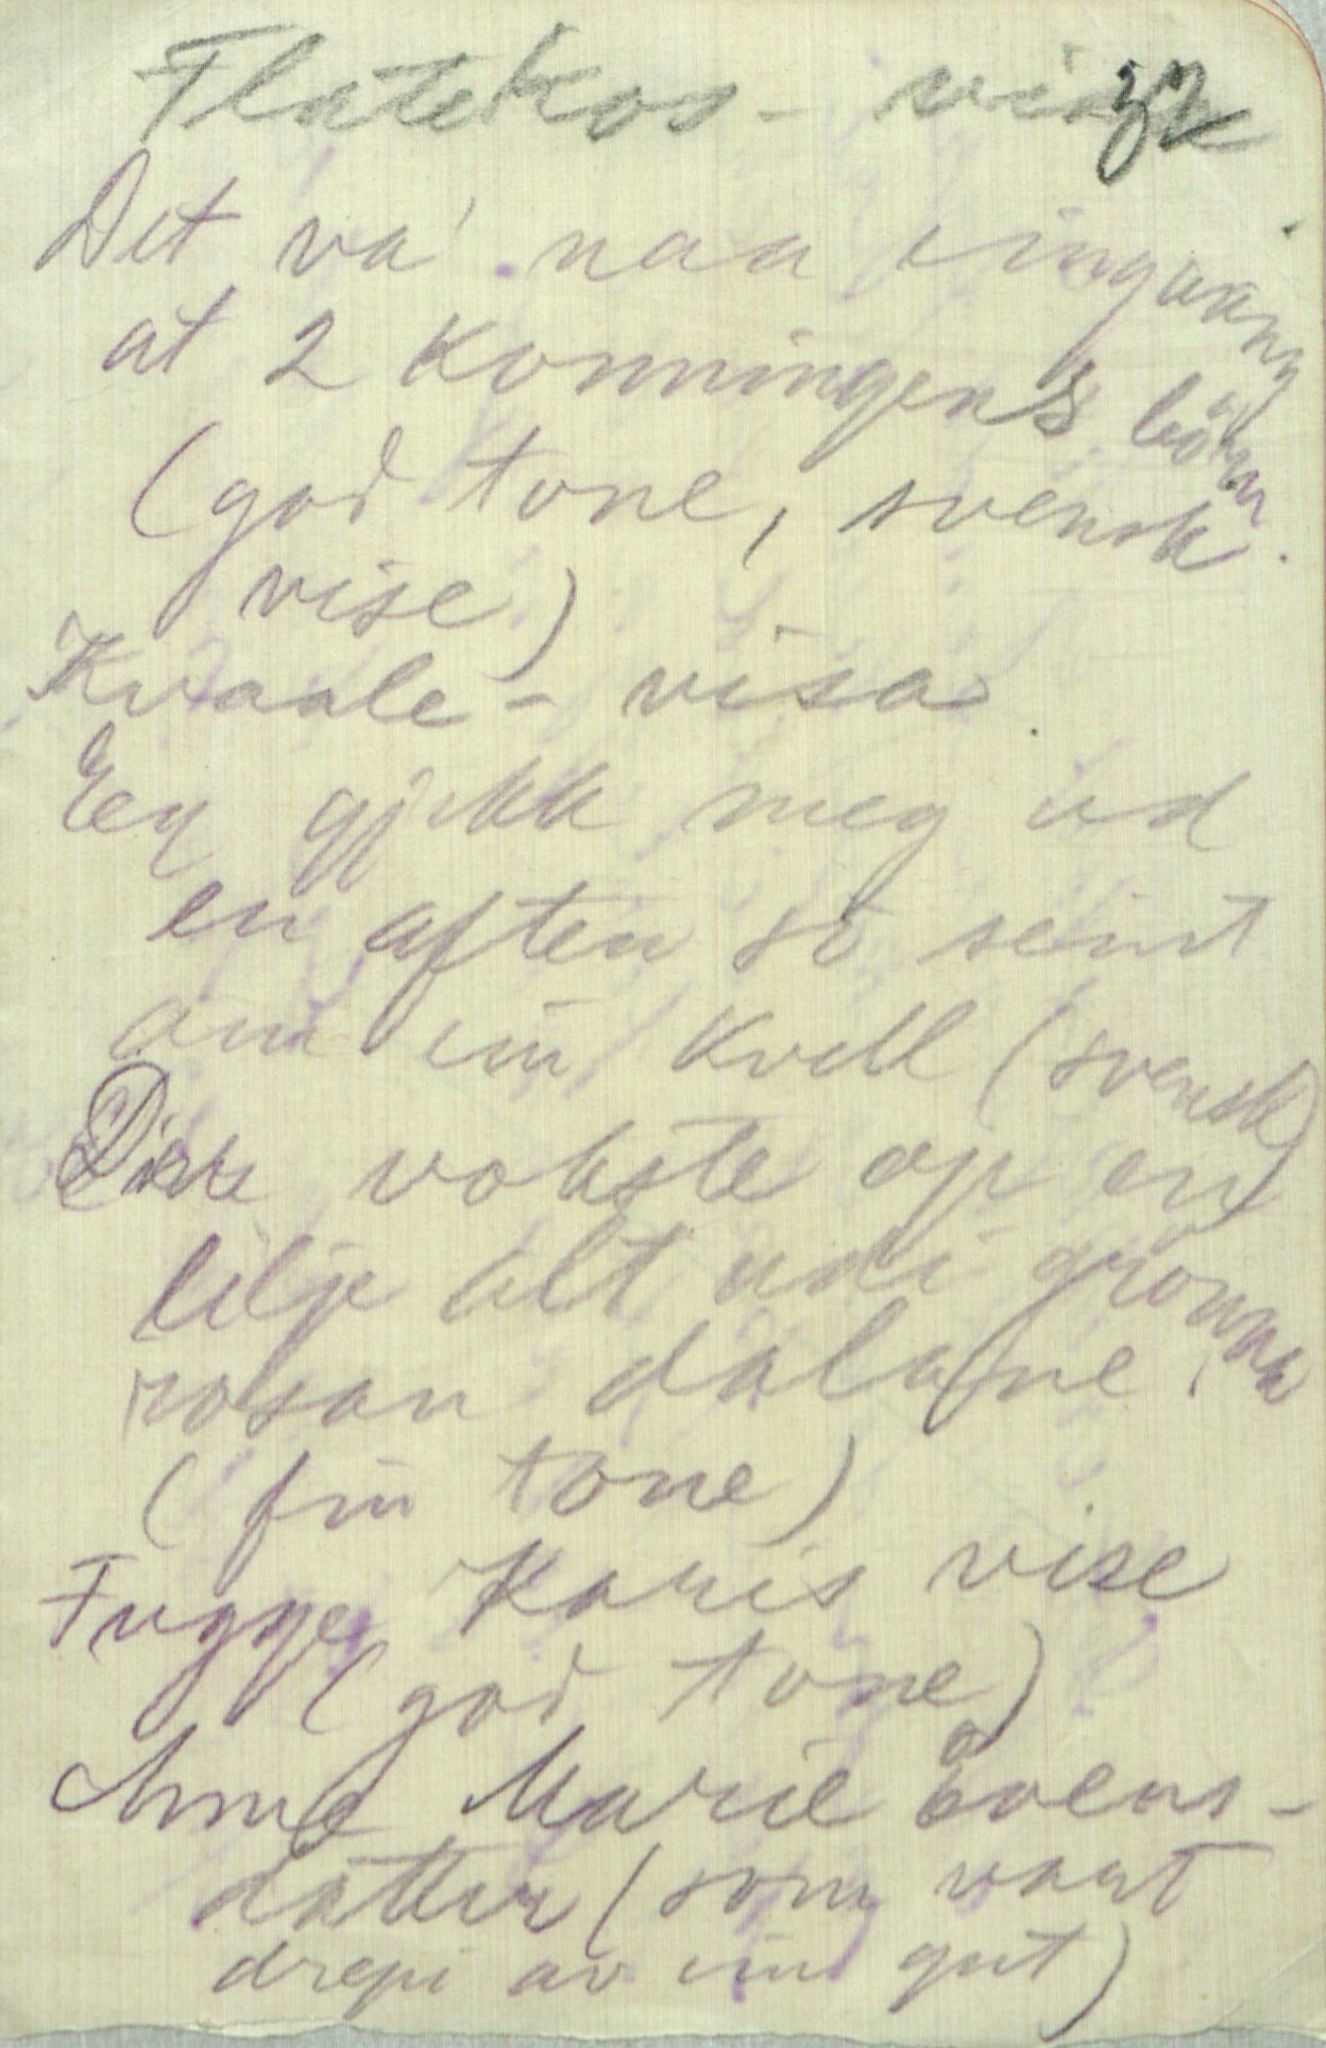 Flatekos-visa
Det va' naa eingaang
at 2 Konningens börn
(god tone, svensk
vise)
Kvaale-visa
Eg gjekk meg ud
en aften so seint
om ein Kvell (svensk)
vokste op en
lilje alt udi grönnan
rosan dalane.
(fin tone)
Fugge Karis vise
(god tone)
Anne Marie Evens-
datter (som vart
drepi av ein gut)